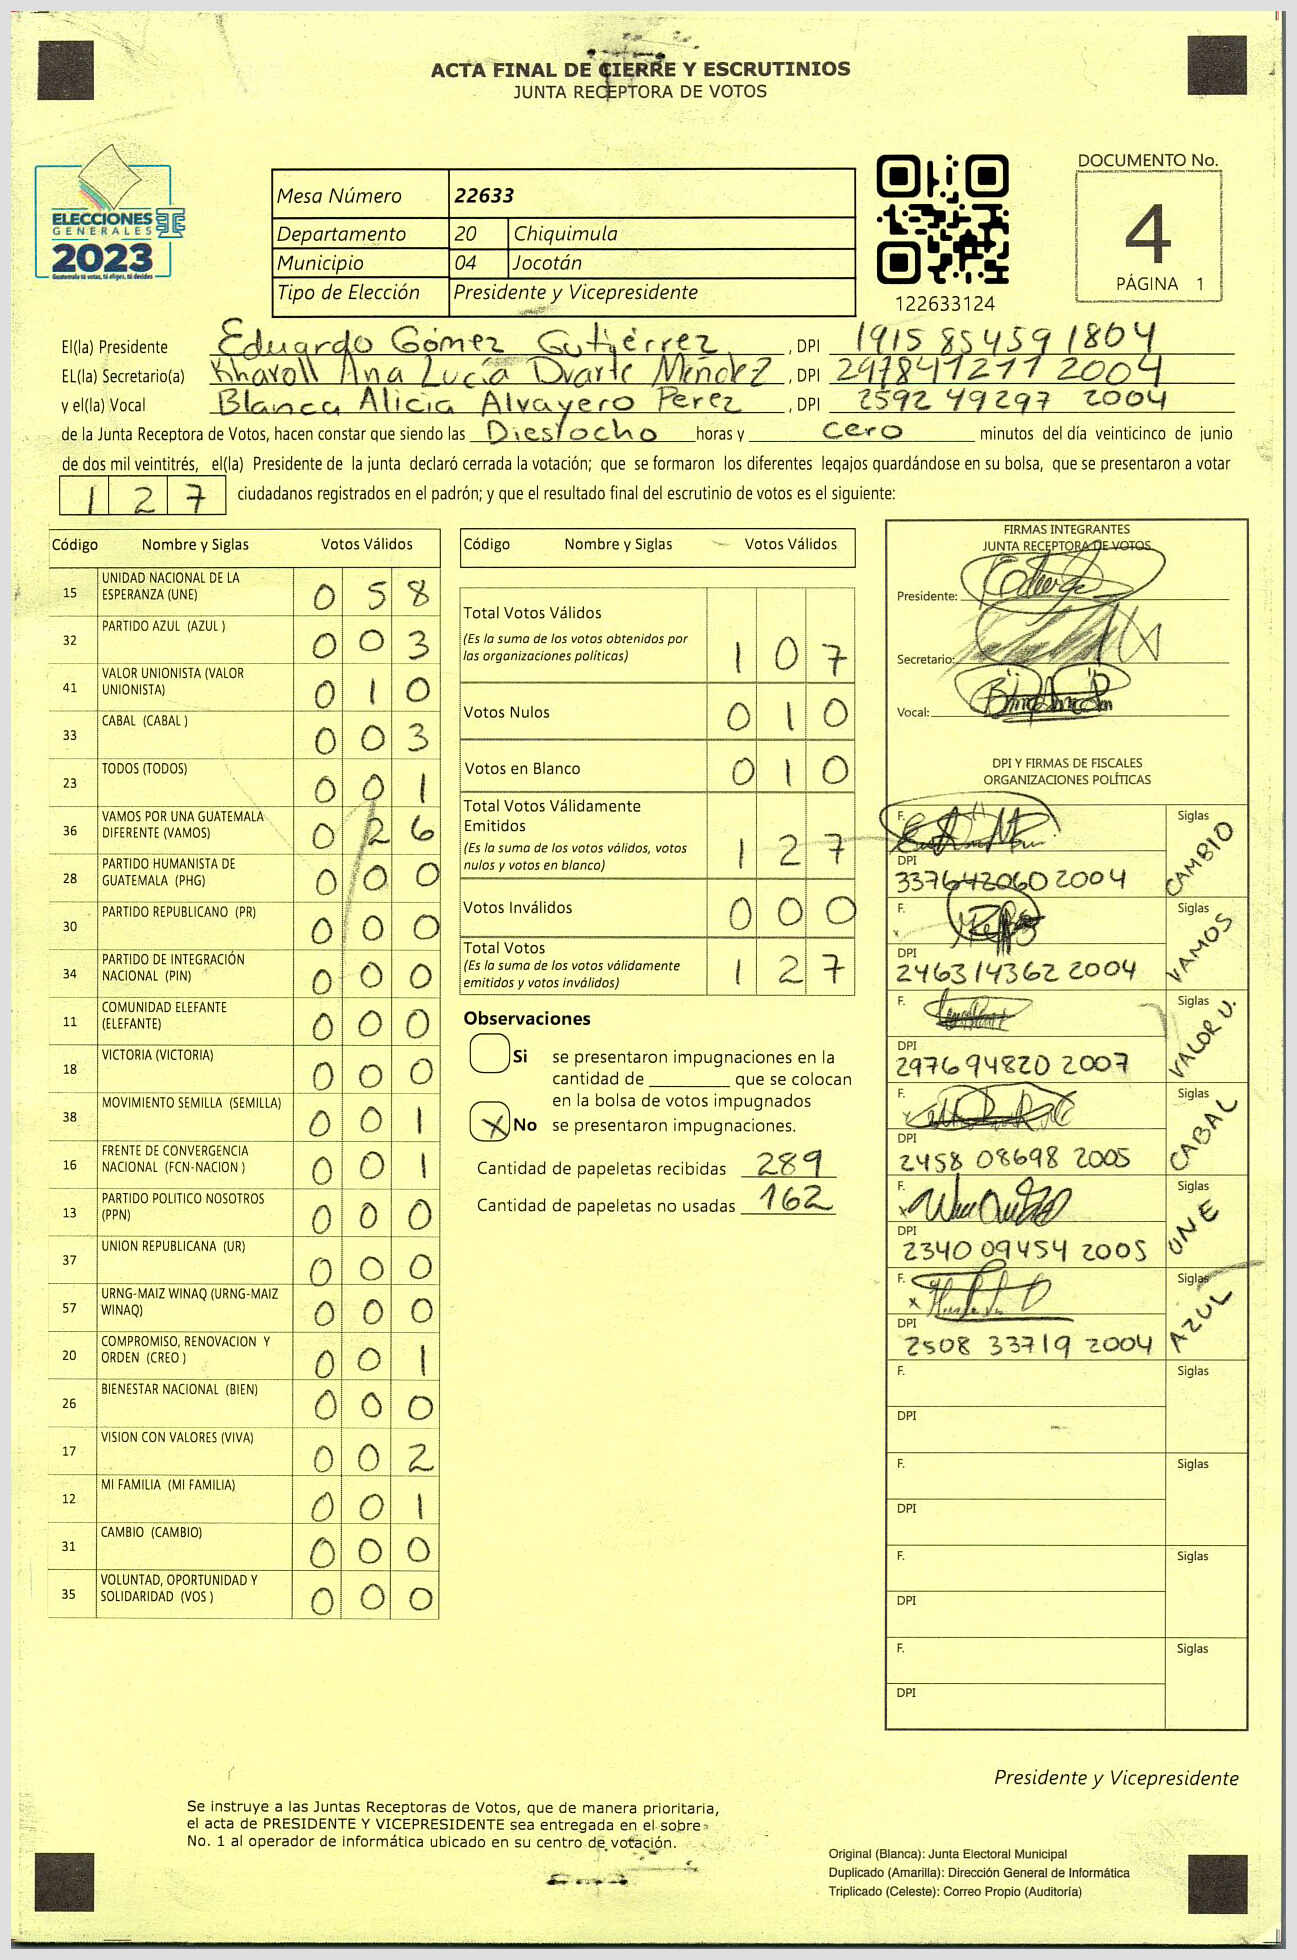 ACTA FINAL DE CIERRE Y ESCRUTINIOS
JUNTA RECEPTORA DE VOTOS
ELECCIONES
GENERALES
2023
Guatemala tú votas, tú eliges, tú decides
Mesa Número 22633
Departamento 20 Chiquimula
Municipio 04 Jocotán
Tipo de Elección Presidente y Vicepresidente
122633124
DOCUMENTO No.
4
PÁGINA 1
El(la) Presidente Eduardo Gómez Gutiérrez, DPI 1915 85459 1804
EL(la) Secretario(a) Kharoll Ana Lucía Duarte Méndez, DPI 297841211 2004
y el(la) Vocal Blanca Alicia Alvayero Perez, DPI 2592 49297 2004
de la Junta Receptora de Votos, hacen constar que siendo las Diesiocho horas y cero minutos del día veinticinco de junio
de dos mil veintitrés, el(la) Presidente de la junta declaró cerrada la votación; que se formaron los diferentes legajos guardándose en su bolsa, que se presentaron a votar
1 2 7 ciudadanos registrados en el padrón; y que el resultado final del escrutinio de votos es el siguiente:
Código Nombre y Siglas Votos Válidos
15 UNIDAD NACIONAL DE LA ESPERANZA (UNE) 0 5 8
32 PARTIDO AZUL (AZUL ) 0 0 3
41 VALOR UNIONISTA (VALOR UNIONISTA) 0 1 0
33 CABAL (CABAL ) 0 0 3
23 TODOS (TODOS) 0 0 1
36 VAMOS POR UNA GUATEMALA DIFERENTE (VAMOS) 0 2 6
28 PARTIDO HUMANISTA DE GUATEMALA (PHG) 0 0 0
30 PARTIDO REPUBLICANO (PR) 0 0 0
34 PARTIDO DE INTEGRACIÓN NACIONAL (PIN) 0 0 0
11 COMUNIDAD ELEFANTE (ELEFANTE) 0 0 0
18 VICTORIA (VICTORIA) 0 0 0
38 MOVIMIENTO SEMILLA (SEMILLA) 0 0 1
16 FRENTE DE CONVERGENCIA NACIONAL (FCN-NACION ) 0 0 1
13 PARTIDO POLITICO NOSOTROS (PPN) 0 0 0
37 UNION REPUBLICANA (UR) 0 0 0
57 URNG-MAIZ WINAQ (URNG-MAIZ WINAQ) 0 0 0
20 COMPROMISO, RENOVACION Y ORDEN (CREO ) 0 0 1
26 BIENESTAR NACIONAL (BIEN) 0 0 0
17 VISION CON VALORES (VIVA) 0 0 2
12 MI FAMILIA (MI FAMILIA) 0 0 1
31 CAMBIO (CAMBIO) 0 0 0
35 VOLUNTAD, OPORTUNIDAD Y SOLIDARIDAD (VOS ) 0 0 0
Código Nombre y Siglas Votos Válidos
Total Votos Válidos
(Es la suma de los votos obtenidos por las organizaciones políticas) 1 0 7
Votos Nulos 0 1 0
Votos en Blanco 0 1 0
Total Votos Válidamente Emitidos
(Es la suma de los votos válidos, votos nulos y votos en blanco) 1 2 7
Votos Inválidos 0 0 0
Total Votos
(Es la suma de los votos válidamente emitidos y votos inválidos) 1 2 7
Observaciones
Si se presentaron impugnaciones en la
cantidad de ________ que se colocan
en la bolsa de votos impugnados
X No se presentaron impugnaciones.
Cantidad de papeletas recibidas 289
Cantidad de papeletas no usadas 162
FIRMAS INTEGRANTES
JUNTA RECEPTORA DE VOTOS
Presidente:
Secretario:
Vocal:
DPI Y FIRMAS DE FISCALES
ORGANIZACIONES POLÍTICAS
F. Siglas CAMBIO
DPI
337642060 2004
F. Siglas VAMOS
DPI
246314362 2004
F. Siglas VALOR U.
DPI
297694820 2007
F. Siglas CABAL
DPI
2458 08698 2005
F. Siglas UNE
DPI
2340 09454 2005
F. Siglas AZUL
DPI
2508 33719 2004
F. Siglas
DPI
F. Siglas
DPI
F. Siglas
DPI
F. Siglas
DPI
Presidente y Vicepresidente
Se instruye a las Juntas Receptoras de Votos, que de manera prioritaria,
el acta de PRESIDENTE Y VICEPRESIDENTE sea entregada en el sobre
No. 1 al operador de informática ubicado en su centro de votación.
Original (Blanca): Junta Electoral Municipal
Duplicado (Amarilla): Dirección General de Informática
Triplicado (Celeste): Correo Propio (Auditoría)